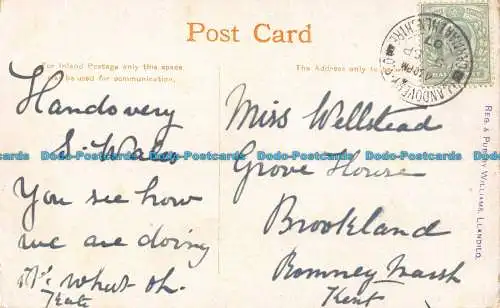 Post Card
For Inland Postage only this space
may be used for communication.
The Address only to
Llandovery
S. Wales
You see how
we are doing
it. what oh.
Kate
Miss Wellstead
Grove House
Brookland
Romney Marsh
Kent
REG. & PUB. BY WILLIAMS, LLANDILO.
LLANDOVERY
CARMARTHENSHIRE
SP
07
Dodo-Postcards Dodo-Postcards Dodo-Postcards Dodo-Postcards Dodo-Postcards